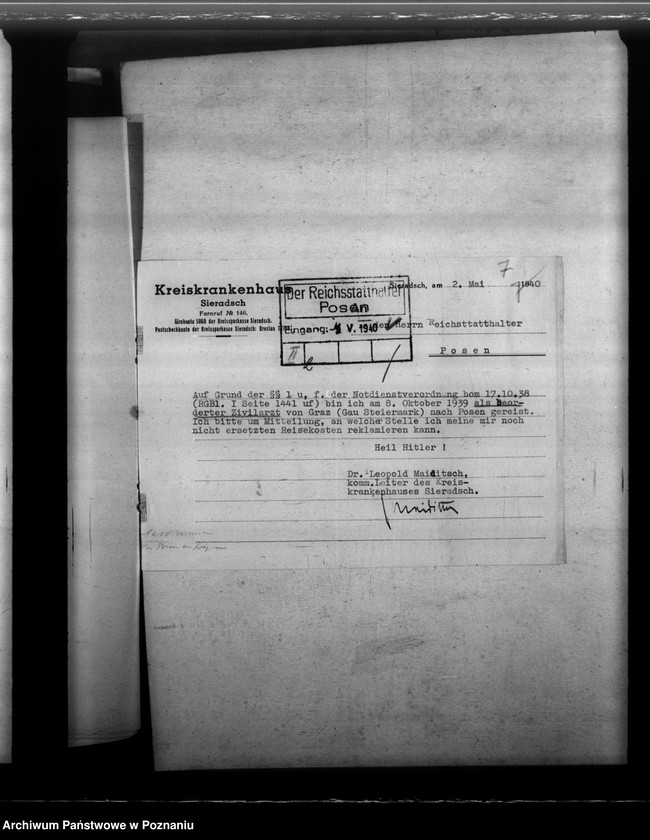 7
Kreiskrankenhaus
Sieradsch
Fernruf № 146.
Girokonto 5068 der Kreissparkasse Sieradsch.
Postscheckkonto der Kreissparkasse Sieradsch: Breslau
Der Reichsstatthalter
Posen
Eingang: -4. V. 1940
II 2
Sieradsch, am 2. Mai 1940
Herrn Reichstatthalter
Posen
Auf Grund der §§ 1 u. f. der Notdienstverordnung bom 17.10.38
(RGBl. I Seite 1441 uf) bin ich am 8. Oktober 1939 als beor-
derter Zivilarzt von Graz (Gau Steiermark) nach Posen gereist.
Ich bitte um Mitteilung, an welche Stelle ich meine mir noch
nicht ersetzten Reisekosten reklamieren kann.
Heil Hitler !
Dr. Leopold Maiditsch,
komm.Leiter des Kreis-
krankenhauses Sieradsch.
Archiwum Państwowe w Poznaniu